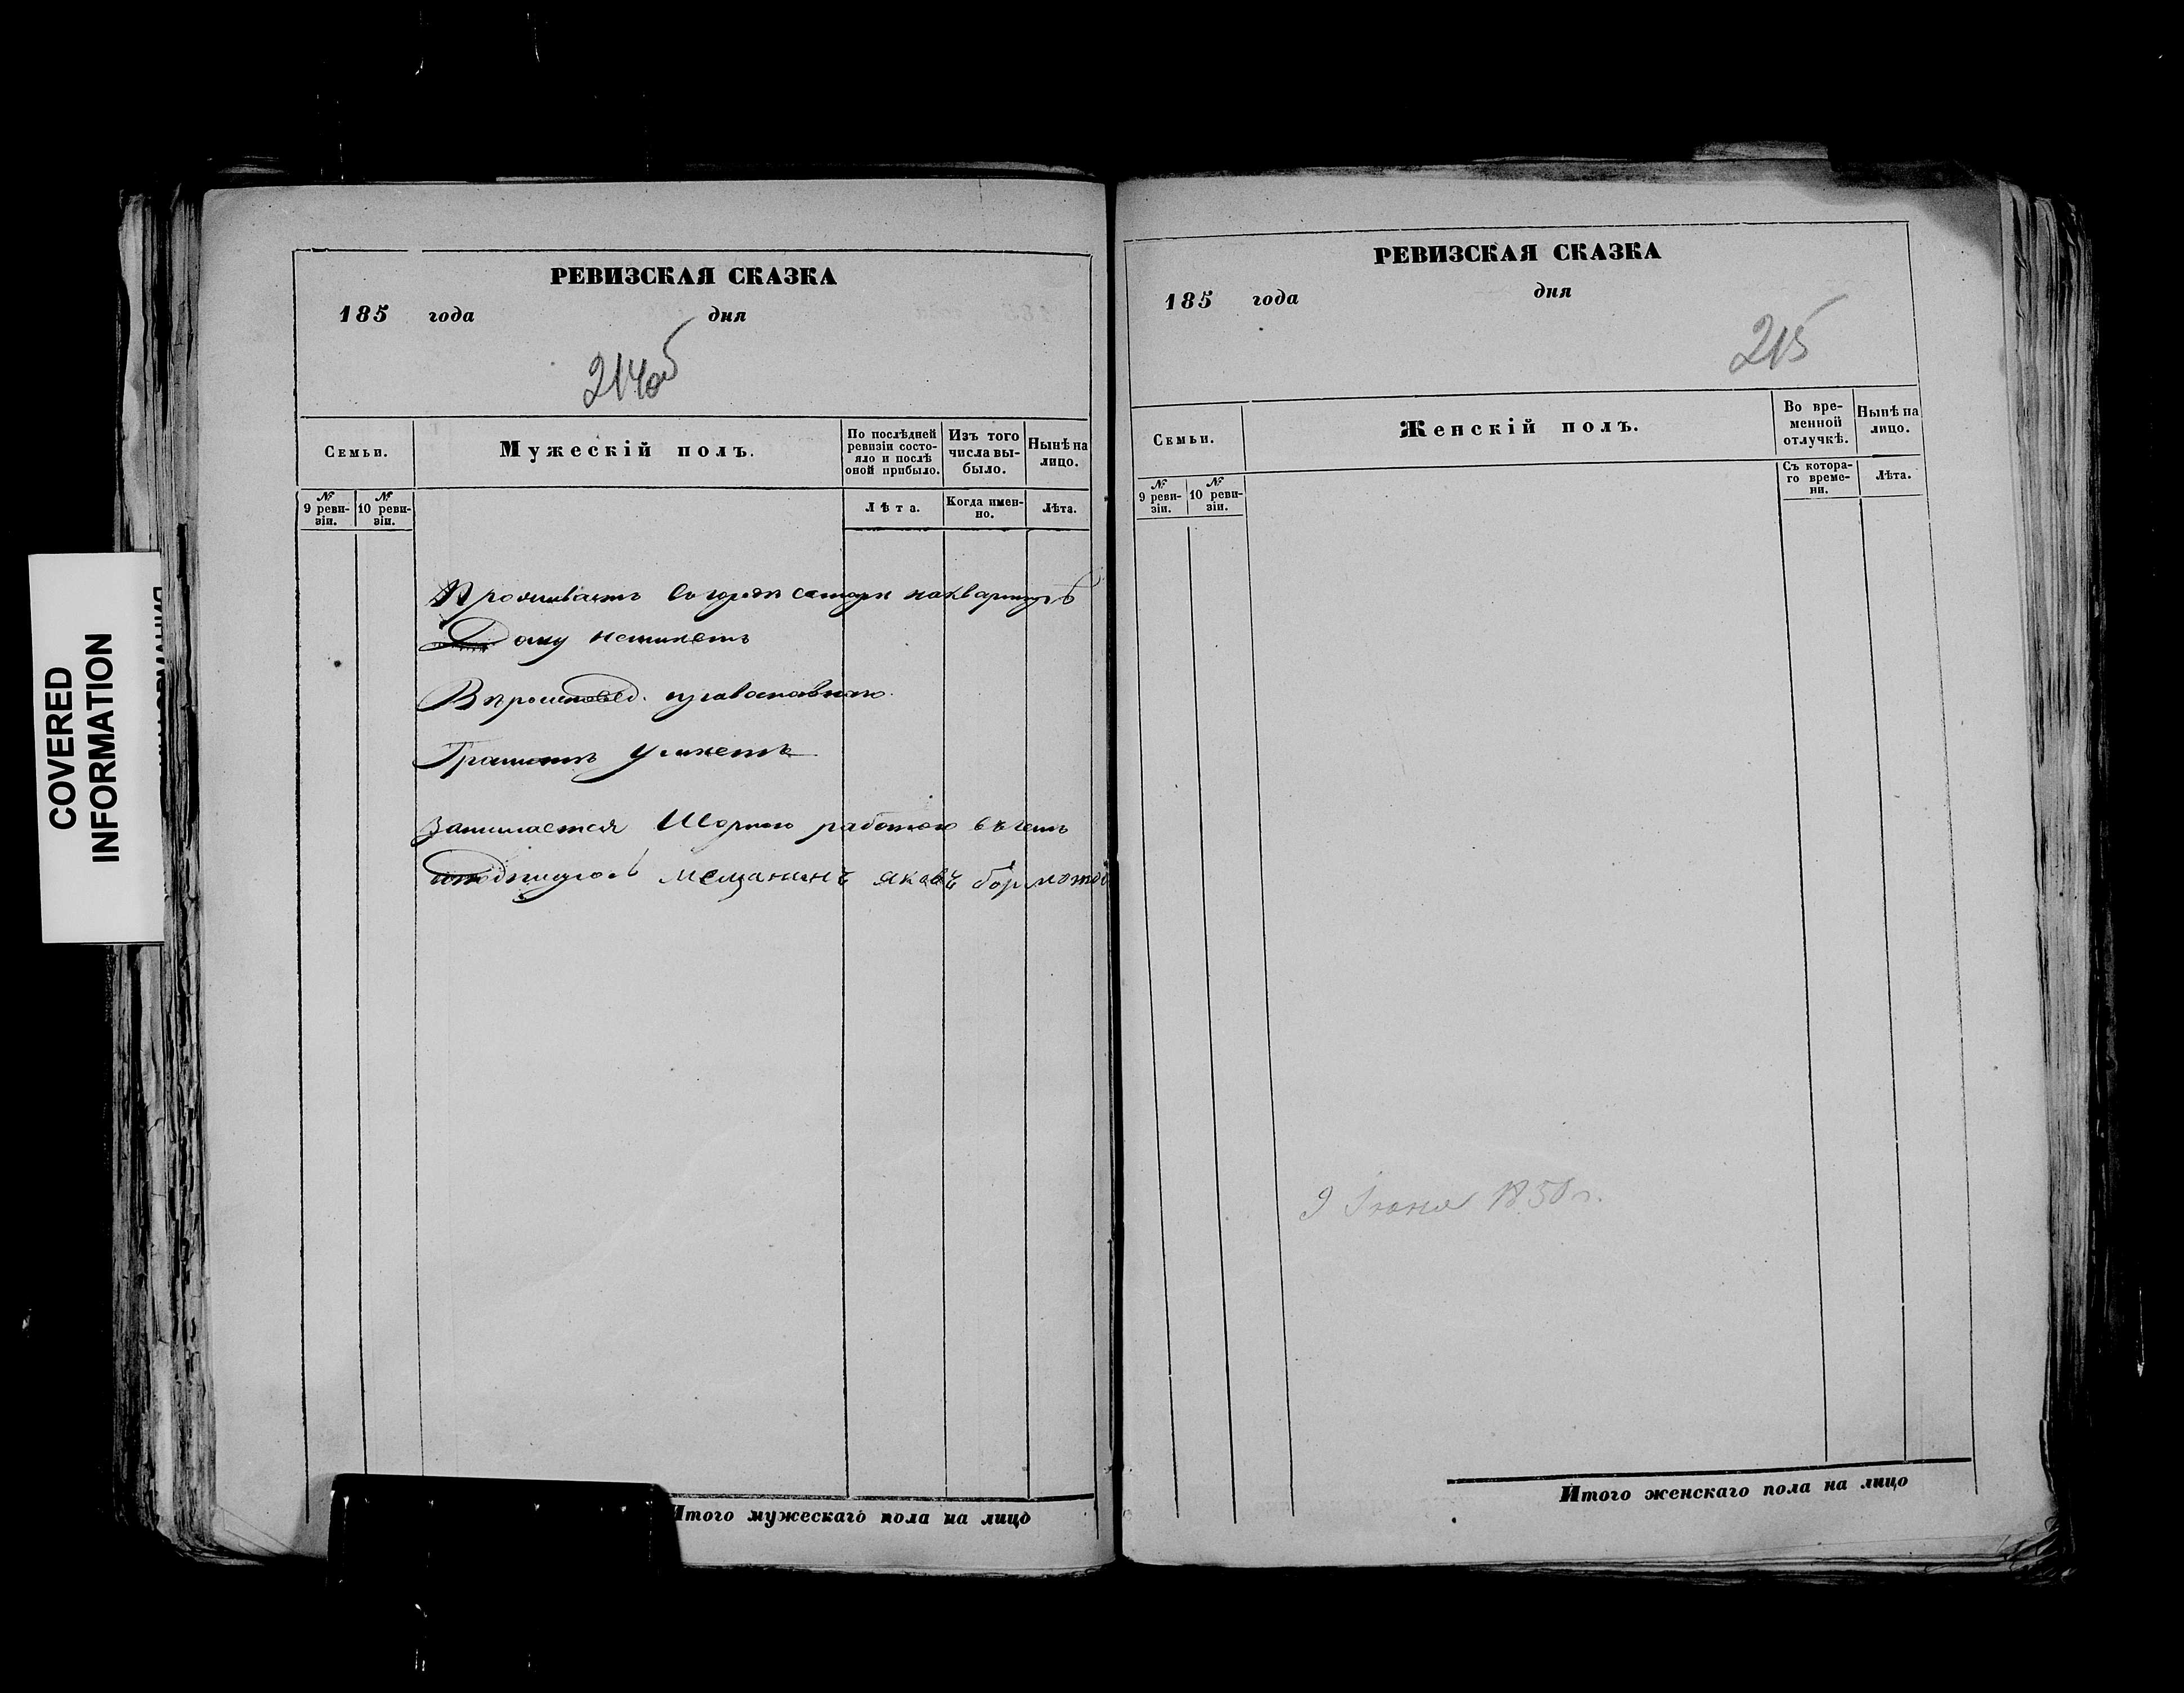 COVERED
INFORMATION
РЕВИЗСКАЯ СКАЗКА
185 года дня
214об
Семьи.
Мужескій полъ.
По послѣдней ревизіи состояло и послѣ оной прибыло.
Изъ того числа выбыло.
Нынѣ на лицо.
№ 9 ревизіи.
№ 10 ревизіи.
Лѣта.
Когда именно.
Лѣта.
Проживаетъ въ городе самаре на квартирѣ
Дому неимеетъ
Вѣроисповед. православнаго
Грамотѣ умѣетъ
Занимается Шорною работою въ чемъ
подписуюсь мещанинъ яковъ
Итого мужескаго пола на лицо
РЕВИЗСКАЯ СКАЗКА
185 года дня
215
Семьи.
Женскій полъ.
Во временной отлучкѣ.
Нынѣ на лицо.
№ 9 ревизіи.
№ 10 ревизіи.
Съ котораго времени.
Лѣта.
9 Іюня 1850 г.
Итого женскаго пола на лицо